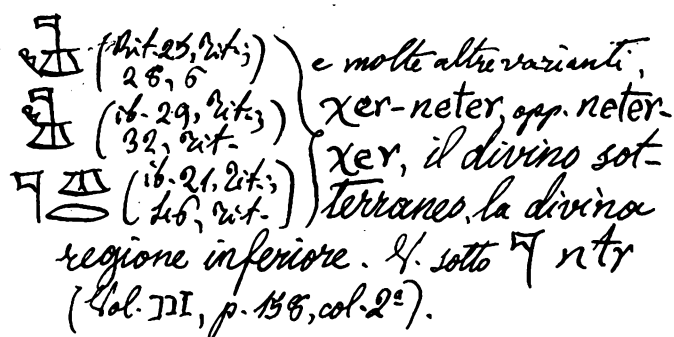 𓊹𓌨 (Rit. 25, tit.;
28, 6
𓊹𓌨 (ib. 29, tit.;
32, tit.
𓊹 𓂋 (ib. 21, tit.;
46, tit.
e molte altre varianti,
χer-neter, opp. neter-
χer, il divino sot-
terraneo, la divina
regione inferiore. V. sotto 𓊹 ntr
(Vol. III, p. 158, col. 2ª).